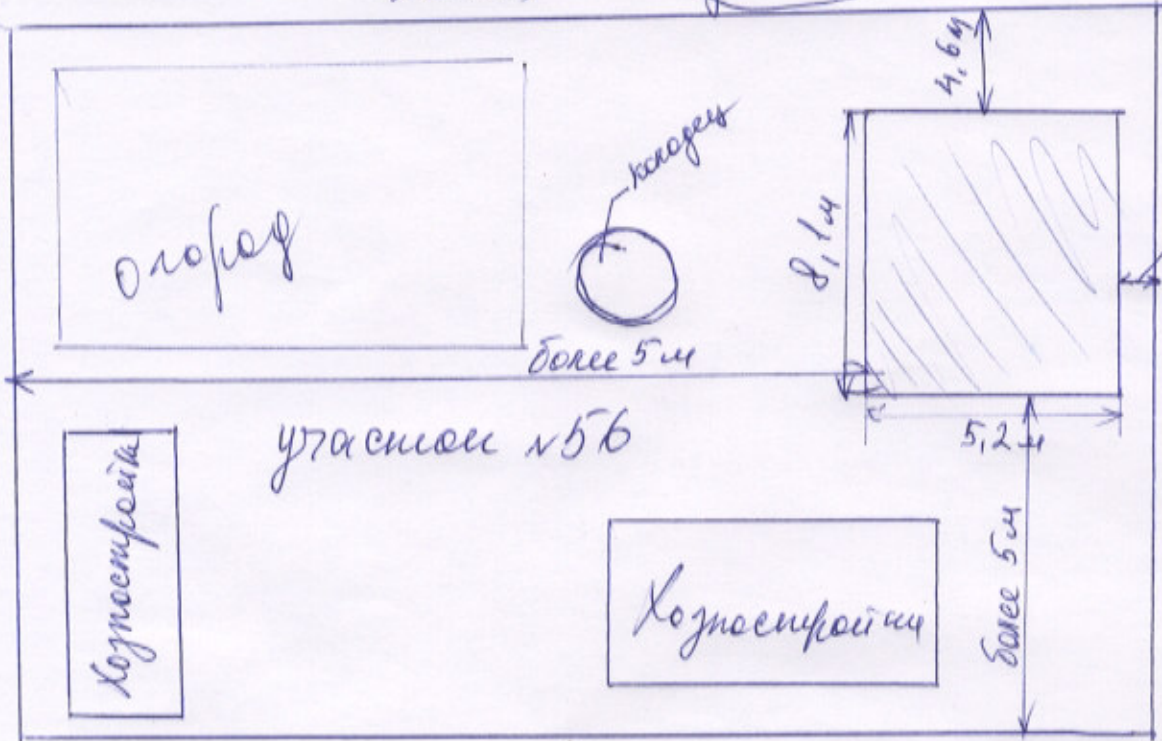 4,6м
колодец
8,1м
огород
более 5м
участок №56
5,2м
Хозпостройка
Хозпостройки
более 5м